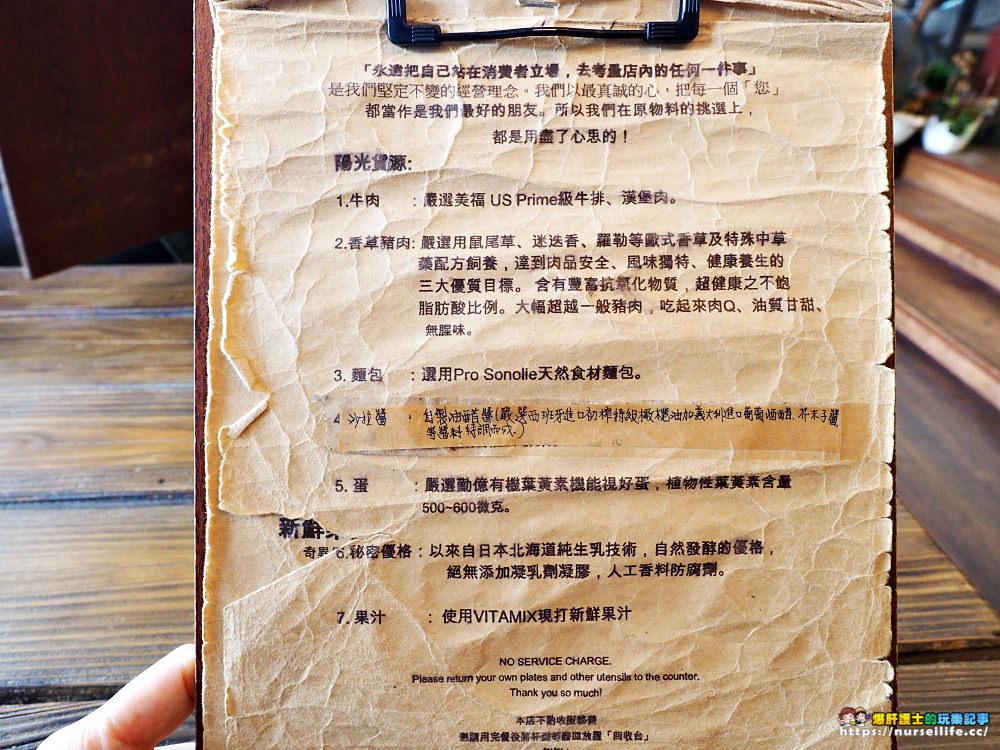 「永遠把自己站在消費者立場，去考量店內的任何一件事」
是我們堅定不變的經營理念。我們以最真誠的心，把每一個「您」
都當作是我們最好的朋友。所以我們在原物料的挑選上，
都是用盡了心思的！
陽光貨源:
1.牛肉 ：嚴選美福 US Prime級牛排、漢堡肉。
2.香草豬肉: 嚴選用鼠尾草、迷迭香、羅勒等歐式香草及特殊中草
藥配方飼養，達到肉品安全、風味獨特、健康養生的
三大優質目標。 含有豐富抗氧化物質，超健康之不飽
脂肪酸比例。大幅超越一般豬肉，吃起來肉Q、油質甘甜、
無腥味。
3. 麵包 ：選用Pro Sonolie天然食材麵包。
4 沙拉醬 : 自製油醋醬(嚴選西班牙進口初榨特級橄欖油加義大利進口葡萄酒醋.芥末子醬
等醬料特調而成.)
5. 蛋 ：嚴選勤億有機葉黃素機能視好蛋，植物性葉黃素含量
500~600微克。
新鮮
奇異
6.秘密優格：以來自日本北海道純生乳技術，自然發酵的優格，
絕無添加凝乳劑凝膠，人工香料防腐劑。
7. 果汁 ：使用VITAMIX現打新鮮果汁
NO SERVICE CHARGE.
Please return your own plates and other utensils to the counter.
Thank you so much!
本店不酌收服務費
懇請用完餐後將杯盤等器皿放置「回收台」
爆肝護士的玩樂記事
https://nurseilife.cc/